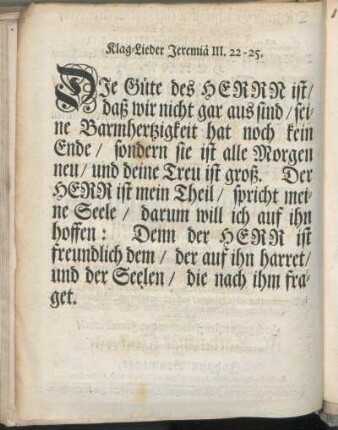 Klag-Lieder Jeremiä III. 22-25.
DIe Güte des HERRN ist/
daß wir nicht gar aus sind/ sei-
ne Barmhertzigkeit hat noch kein
Ende/ sondern sie ist alle Morgen
neu/ und deine Treu ist groß. Der
HERR ist mein Theil/ spricht mei-
ne Seele/ darum will ich auf ihn
hoffen: Denn der HERR ist
freundlich dem/ der auf ihn harret/
und der Seelen/ die nach ihm fra-
get.